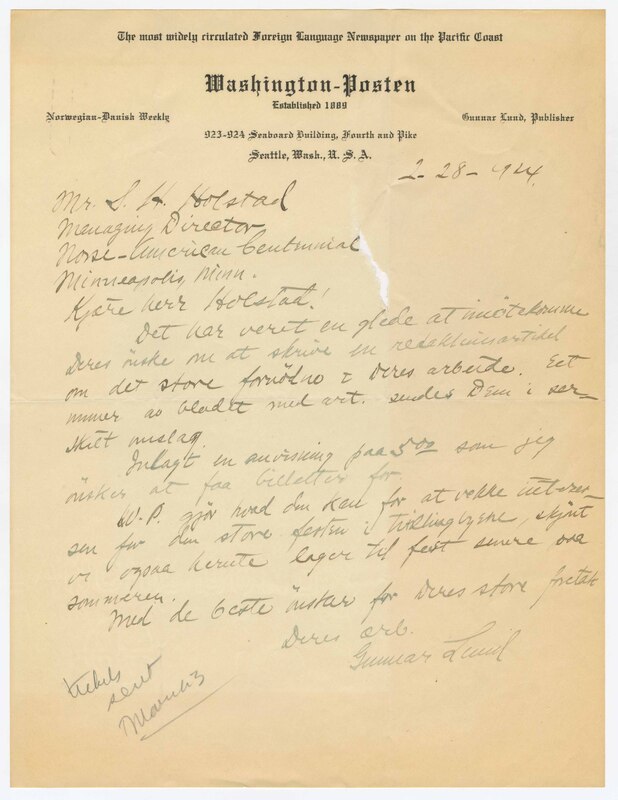 The most widely circulated Foreign Language Newspaper on the Pacific Coast
Washington-Posten
Established 1889
Norwegian-Danish Weekly
Gunnar Lund, Publisher
923-924 Seaboard Building, Fourth and Pike
Seattle, Wash., U. S. A.
2-28-924.
Mr. S. H. Holstad
Managing Director
Norse-American Centennial
Minneapolis, Minn.
Kjære herr Holstad!
Det har veret en glede at imøtekomme
Deres ønske om at skrive en redaktionsartikel
om det store Deres arbeide. Eet
numer av bladet med art. sendes Dem i ser-
skilt omslag.
Inlagt en anvisning paa 5.00 som jeg
ønsker at faa billetter for
W.P. gjør hvad den kan for at vekke interes-
sen for den store festen i tvillingbyene, skjönt
vi ogsaa herute lager til fest senere paa
sommeren.
Med de beste ønsker for Deres store foretak
Deres ærb.
Gunnar Lund
tickets
sent
March 3